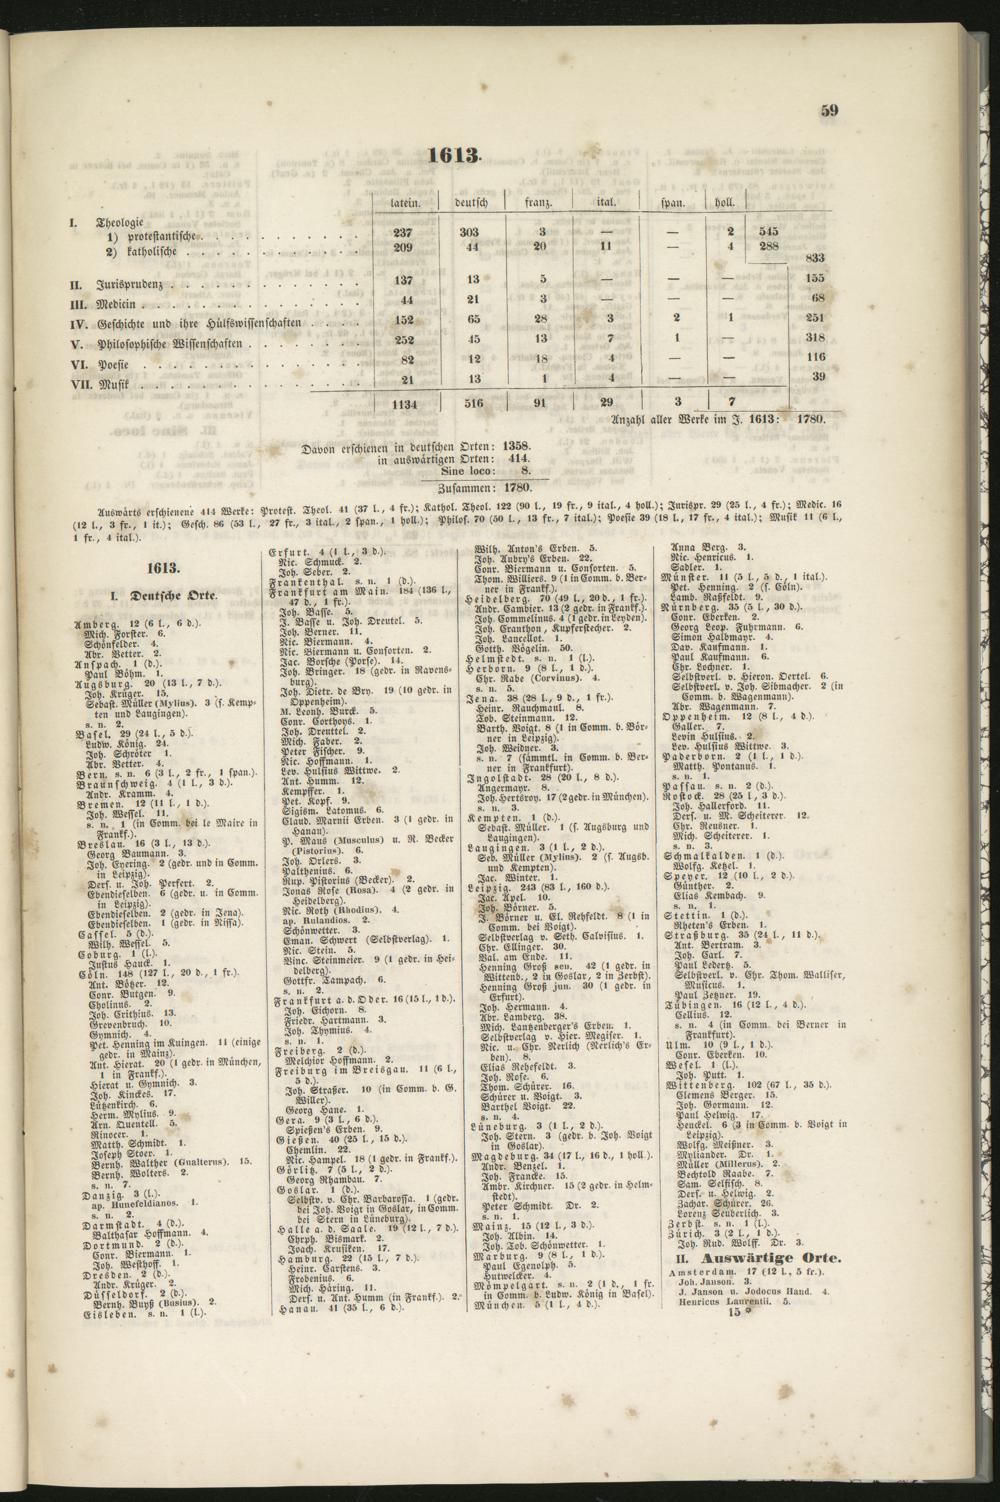 59
1613.
latein. deutsch franz. ital. span. holl.
I. Theologie
1) protestantische 237 303 3 — — 2 545
2) katholische 209 44 20 11 — 4 288
833
II. Jurisprudenz 137 13 5 — — — 155
III. Medicin 44 21 3 — — — 68
IV. Geschichte und ihre Hülfswissenschaften 152 65 28 3 2 1 251
V. Philosophische Wissenschaften 252 45 13 7 1 — 318
VI. Poesie 82 12 18 4 — — 116
VII. Musik 21 13 1 4 — — 39
1134 516 91 29 3 7
Anzahl aller Werke im J. 1613: 1780.
Davon erschienen in deutschen Orten: 1358.
in auswärtigen Orten: 414.
Sine loco: 8.
Zusammen: 1780.
Auswärts erschienene 414 Werke: Protest. Theol. 41 (37 l., 4 fr.); Kathol. Theol. 122 (90 l., 19 fr., 9 ital., 4 holl.); Jurispr. 29 (25 l., 4 fr.); Medic. 16
(12 l., 3 fr., 1 it.); Gesch. 86 (53 l., 27 fr., 3 ital., 2 span., 1 holl.); Philos. 70 (50 l., 13 fr., 7 ital.); Poesie 39 (18 l., 17 fr., 4 ital.); Musik 11 (6 l.,
1 fr., 4 ital.).
1613.
I. Deutsche Orte.
Amberg. 12 (6 l., 6 d.).
Mich. Forster. 6.
Schönfelder. 4.
Abr. Vetter. 2.
Anspach. 1 (d.).
Paul Böhm. 1.
Augsburg. 20 (13 l., 7 d.).
Joh. Krüger. 15.
Sebast. Müller (Mylius). 3 (s. Kemp-
ten und Laugingen).
s. n. 2.
Basel. 29 (24 l., 5 d.).
Ludw. König. 24.
Joh. Schröter 1.
Abr. Vetter. 4.
Bern. s. n. 6 (3 l., 2 fr., 1 span.).
Braunschweig. 4 (1 l., 3 d.).
Andr. Kramm. 4.
Bremen. 12 (11 l., 1 d.).
Joh. Wessel. 11.
s. n. 1 (in Comm. bei le Maire in
Frankf.).
Breslau. 16 (3 l., 13 d.).
Georg Baumann. 3.
Joh. Eyering. 2 (gedr. und in Comm.
in Leipzig).
Ders. u. Joh. Perfert. 2.
Ebendieselben. 6 (gedr. u. in Comm.
in Leipzig).
Ebendieselben. 2 (gedr. in Jena).
Ebendieselben. 1 (gedr. in Nissa).
Cassel. 5 (d.).
Wilh. Wessel. 5.
Coburg. 1 (l.).
Justus Hauck. 1.
Cöln. 148 (127 l., 20 d., 1 fr.).
Ant. Bötzer. 12.
Conr. Butgen. 9.
Cholinus. 2.
Joh. Crithius. 13.
Grevenbruch. 10.
Gymnich. 4.
Pet. Henning im Kuingen. 11 (einige
gedr. in Mainz).
Ant. Hierat. 20 (1 gedr. in München,
1 in Frankf.).
Hierat u. Gymnich. 3.
Joh. Kinckes. 17.
Lützenkirch. 6.
Herm. Mylius. 9.
Arn. Quentell. 5.
Rinocer. 1.
Matth. Schmidt. 1.
Joseph Stoer. 1.
Bernh. Walther (Gualterus). 15.
Bernh. Wolters. 2.
s. n. 7.
Danzig. 3 (l.).
ap. Hunefeldianos. 1.
s. n. 2.
Darmstadt. 4 (d.).
Balthasar Hoffmann. 4.
Dortmund. 2 (d.).
Conr. Biermann. 1.
Joh. Westhoff. 1.
Dresden. 2 (d.).
Andr. Krüger. 2.
Düsseldorf. 2 (d.).
Bernh. Buyß (Busius). 2.
Eisleben. s. n. 1 (l.).
Erfurt. 4 (1 l., 3 d.).
Nic. Schmuck. 2.
Joh. Seber. 2.
Frankenthal. s. n. 1 (d.).
Frankfurt am Main. 184 (136 l.,
47 d., 1 fr.).
Joh. Basse. 5.
J. Basse u. Joh. Dreutel. 5.
Joh. Berner. 11.
Nic. Biermann. 4.
Nic. Biermann u. Consorten. 2.
Jac. Borsche (Porse). 14.
Joh. Bringer. 18 (gedr. in Ravens-
burg).
Joh. Dietr. de Bry. 19 (10 gedr. in
Oppenheim).
M. Leonh. Burck. 5.
Conr. Corthoys. 1.
Joh. Dreuttel. 2.
Mich. Faber. 2.
Peter Fischer. 9.
Nic. Hoffmann. 1.
Lev. Hulsius Wittwe. 2.
Ant. Humm. 12.
Kempffer. 1.
Pet. Kopf. 9.
Sigism. Latomus. 6.
Claud. Marnii Erben. 3 (1 gedr. in
Hanau).
P. Maus (Musculus) u. R. Becker
(Pistorius). 6.
Joh. Orlers. 3.
Palthenius. 6.
Rup. Pistorius (Becker). 2.
Jonas Rose (Rosa). 4 (2 gedr. in
Heidelberg).
Nic. Roth (Rhodius). 4.
ap. Rulandios. 2.
Schönwetter. 3.
Eman. Schwert (Selbstverlag). 1.
Nic. Stein. 5.
Vinc. Steinmeier. 9 (1 gedr. in Hei-
delberg).
Gottfr. Tampach. 6.
s. n. 2.
Frankfurt a. d. Oder. 16 (15 l., 1 d.).
Joh. Eichorn. 8.
Friedr. Hartmann. 3.
Joh. Thymius. 4.
s. n. 1.
Freiberg. 2 (d.).
Melchior Hoffmann. 2.
Freiburg im Breisgau. 11 (6 l.,
5 d.).
Joh. Straßer. 10 (in Comm. b. G.
Willer).
Georg Hane. 1.
Gera. 9 (3 l., 6 d.).
Spießen's Erben. 9.
Gießen. 40 (25 l., 15 d.).
Chemlin. 22.
Nic. Hampel. 18 (1 gedr. in Frankf.).
Görlitz. 7 (5 l., 2 d.).
Georg Rhambau. 7.
Goslar. 1 (d.).
Selbstv. v. Chr. Barbarossa. 1 (gedr.
bei Joh. Voigt in Goslar, in Comm.
bei Stern in Lüneburg).
Halle a. d. Saale. 19 (12 l., 7 d.).
Chrph. Bismark. 2.
Joach. Krusiken. 17.
Hamburg. 22 (15 l., 7 d.).
Heinr. Carstens. 3.
Frobenius. 6.
Mich. Häring. 11.
Ders. u. Ant. Humm (in Frankf.). 2.
Hanau. 41 (35 l., 6 d.).
Wilh. Anton's Erben. 5.
Joh. Aubry's Erben. 22.
Conr. Biermann u. Consorten. 5.
Thom. Williers. 9 (1 in Comm. b. Ber-
ner in Frankf.).
Heidelberg. 70 (49 l., 20 d., 1 fr.).
Andr. Cambier. 13 (2 gedr. in Frankf.).
Joh. Commelinus. 4 (1 gedr. in Leyden).
Joh. Cranthon, Kupferstecher. 2.
Joh. Lancellot. 1.
Gotth. Vögelin. 50.
Helmstedt. s. n. 1 (l.).
Herborn. 9 (8 l., 1 d.).
Chr. Rabe (Corvinus). 4.
s. n. 5.
Jena. 38 (28 l., 9 d., 1 fr.).
Heinr. Rauchmaul. 8.
Tob. Steinmann. 12.
Barth. Voigt. 8 (1 in Comm. b. Bör-
ner in Leipzig).
Joh. Weidner. 3.
s. n. 7 (sämmtl. in Comm. b. Ber-
ner in Frankfurt).
Ingolstadt. 28 (20 l., 8 d.).
Angermayr. 8.
Joh. Hertsroy. 17 (2 gedr. in München).
s. n. 3.
Kempten. 1 (d.).
Sebast. Müller. 1 (s. Augsburg und
Laugingen).
Laugingen. 3 (1 l., 2 d.).
Seb. Müller (Mylius). 2 (s. Augsb.
und Kempten).
Jac. Winter. 1.
Leipzig. 243 (83 l., 160 d.).
Jac. Apel. 10.
Joh. Börner. 5.
J. Börner u. El. Rehfeldt. 8 (1 in
Comm. bei Voigt).
Selbstverlag v. Seth. Calvisius. 1.
Chr. Ellinger. 30.
Val. am Ende. 11.
Henning Groß sen. 42 (1 gedr. in
Wittenb., 2 in Goslar, 2 in Zerbst).
Henning Groß jun. 30 (1 gedr. in
Erfurt).
Joh. Hermann. 4.
Abr. Lamberg. 38.
Mich. Lantzenberger's Erben. 1.
Selbstverlag v. Hier. Megiser. 1.
Nic. u. Chr. Nerlich (Nerlich's Er-
ben). 8.
Elias Rehefeldt. 3.
Joh. Rose. 6.
Thom. Schürer. 16.
Schürer u. Voigt. 3.
Barthel Voigt. 22.
s. n. 4.
Lüneburg. 3 (1 l., 2 d.).
Joh. Stern. 3 (gedr. b. Joh. Voigt
in Goslar).
Magdeburg. 34 (17 l., 16 d., 1 holl.).
Andr. Benzel. 1.
Joh. Francke. 15.
Ambr. Kirchner. 15 (2 gedr. in Helm-
stedt).
Peter Schmidt. Dr. 2.
s. n. 1.
Mainz. 15 (12 l., 3 d.).
Joh. Albin. 14.
Joh. Tob. Schönwetter. 1.
Marburg. 9 (8 l., 1 d.).
Paul Egenolph. 5.
Hutwelcker. 4.
Mömpelgart. s. n. 2 (1 d., 1 fr.
in Comm. b. Ludw. König in Basel).
München. 5 (1 l., 4 d.).
Anna Berg. 3.
Nic. Henricus. 1.
Sadler. 1.
Münster. 11 (5 l., 5 d., 1 ital.).
Pet. Henning. 2 (s. Cöln).
Lamb. Raßfeldt. 9.
Nürnberg. 35 (5 l., 30 d.).
Conr. Eberken. 2.
Georg Leop. Fuhrmann. 6.
Simon Halbmayr. 4.
Dav. Kaufmann. 1.
Paul Kaufmann. 6.
Chr. Lochner. 1.
Selbstverl. v. Hieron. Oertel. 6.
Selbstverl. v. Joh. Sibmacher. 2 (in
Comm. b. Wagenmann).
Abr. Wagenmann. 7.
Oppenheim. 12 (8 l., 4 d.).
Galler. 7.
Levin Hulsius. 2.
Lev. Hulsius Wittwe. 3.
Paderborn. 2 (1 l., 1 d.).
Matth. Pontanus. 1.
s. n. 1.
Passau. s. n. 2 (d.).
Rostock. 28 (25 l., 3 d.).
Joh. Hallerford. 11.
Ders. u. M. Scheiterer. 12.
Chr. Reusner. 1.
Mich. Scheiterer. 1.
s. n. 3.
Schmalkalden. 1 (d.).
Wolfg. Ketzel. 1.
Speyer. 12 (10 l., 2 d.).
Günther. 2.
Elias Kembach. 9.
s. n. 1.
Stettin. 1 (d.).
Rheten's Erben. 1.
Straßburg. 35 (24 l., 11 d.).
Ant. Bertram. 3.
Joh. Carl. 7.
Paul Lederz. 5.
Selbstverl. v. Chr. Thom. Walliser,
Musicus. 1.
Paul Zetzner. 19.
Tübingen. 16 (12 l., 4 d.).
Cellius. 12.
s. n. 4 (in Comm. bei Berner in
Frankfurt).
Ulm. 10 (9 l., 1 d.).
Conr. Eberken. 10.
Wesel. 1 (l.).
Joh. Putt. 1.
Wittenberg. 102 (67 l., 35 d.).
Clemens Berger. 15.
Joh. Gormann. 12.
Paul Helwig. 17.
Henckel. 6 (3 in Comm. b. Voigt in
Leipzig).
Wolfg. Meißner. 3.
Myliander. Dr. 1.
Müller (Millerus). 2.
Bechtold Raabe. 7.
Sam. Selfisch. 8.
Ders. u. Helwig. 2.
Zachar. Schürer. 26.
Lorenz Seuberlich. 3.
Zerbst. s. n. 1 (l.).
Zürich. 3 (2 l., 1 d.).
Joh. Rud. Wolff. Dr. 3.
II. Auswärtige Orte.
Amsterdam. 17 (12 l., 5 fr.).
Joh. Janson. 3.
J. Janson u. Jodocus Hand. 4.
Henricus Laurentii. 5.
15 *